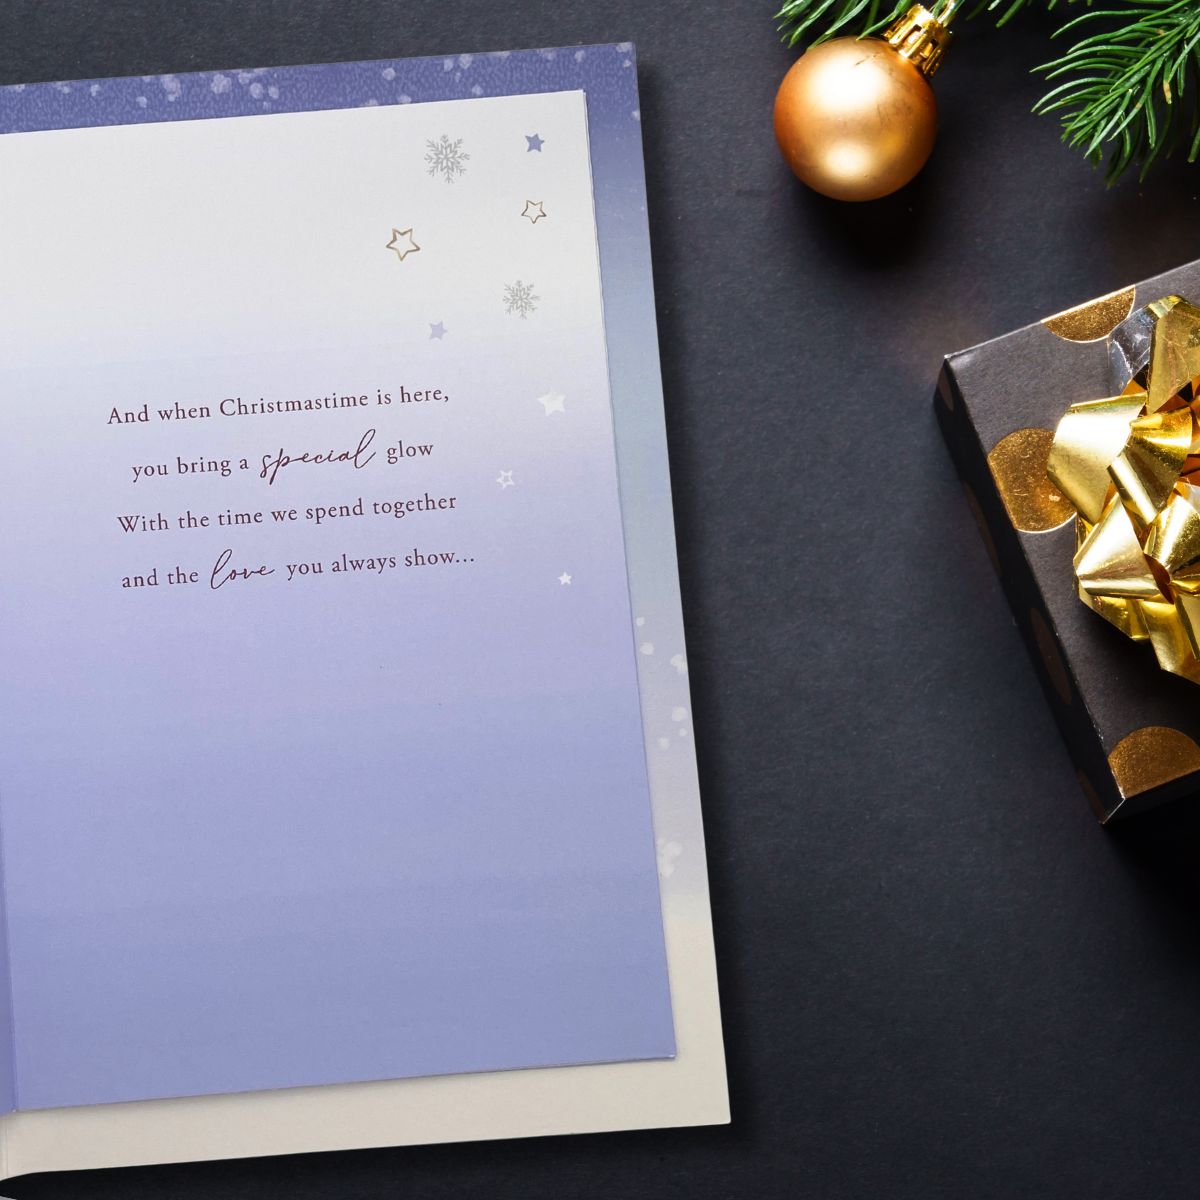 And when Christmastime is here,
you bring a special glow
With the time we spend together
and the love you always show...